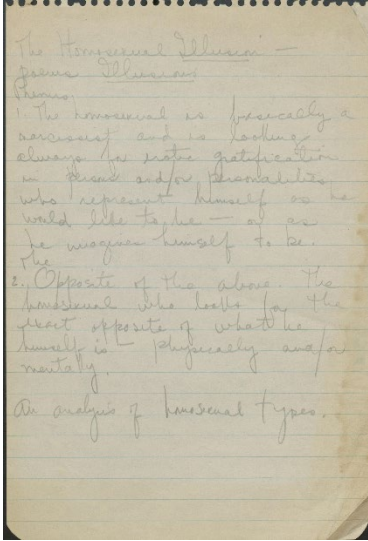 The Homosexual Illusion —
poems Illusions
Premise
1. The homosexual is basically a
narcissist and is looking
always for erotic gratification
in persons and/or personalities
who represent himself as he
would like to be — or as
he imagines himself to be.
The
2. Opposite of the above. The
homosexual who looks for the
exact opposite of what he
himself is — physically and/or
mentally.
An analysis of homosexual types.